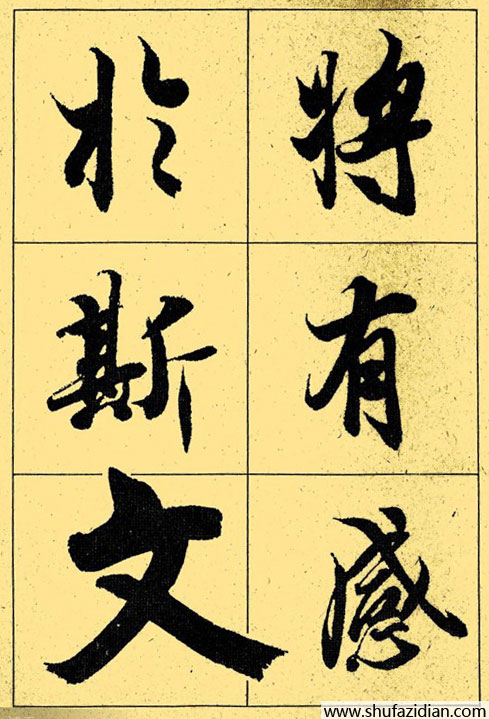 将有感
於斯文
www.shufazidian.com